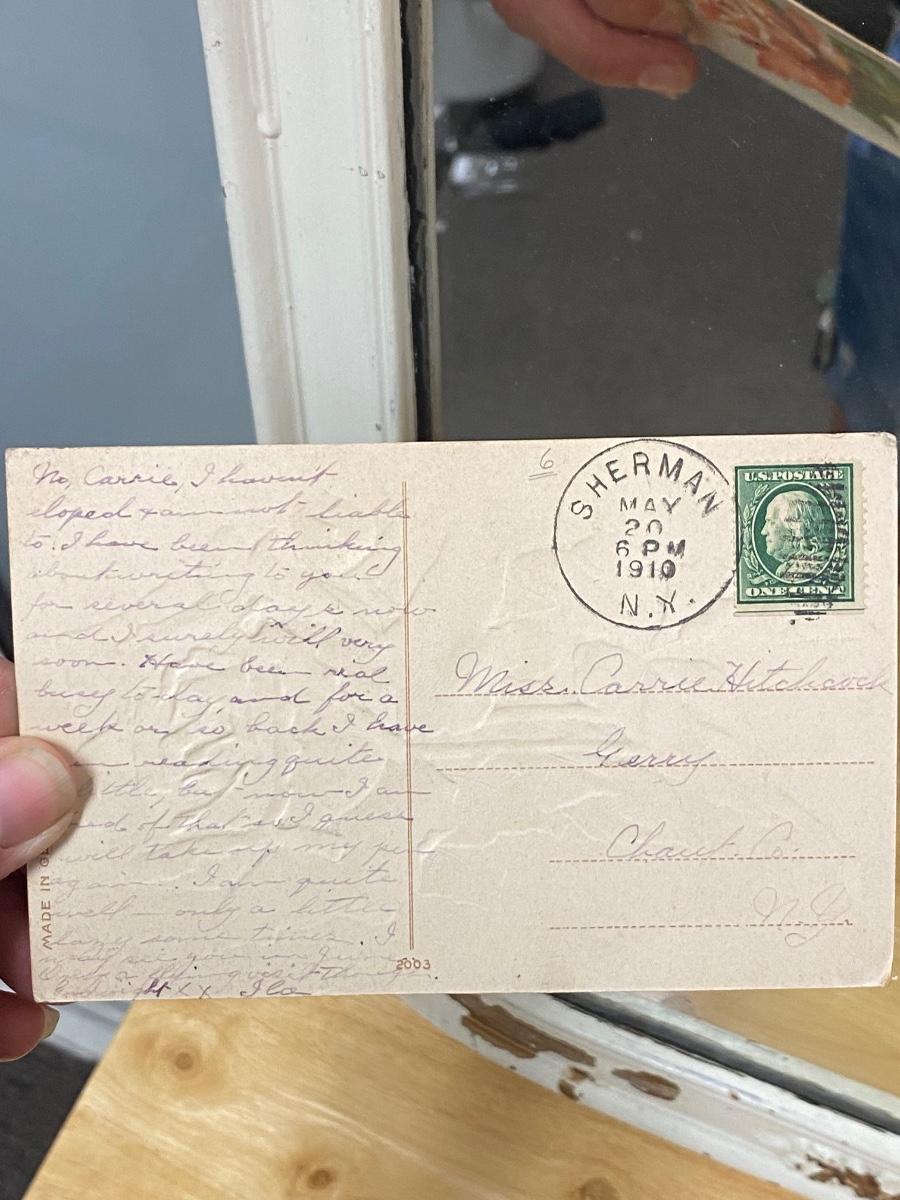 No, Carrie, I haven't
eloped & am not liable
to. I have been thinking
about writing to you
for several days now
and I surely will very
soon. Have been real
busy to-day, and for a
week or so back I have
in reading quite
little, but now I am
of that so I guess
will take up my pen
again. I am quite
well - only a little
lazy some times. I
may see you in June
Only a flying visit though
Ila
MADE IN GE
2003
6
SHERMAN
MAY
20
6 PM
1910
N.Y.
U.S. POSTAGE
ONE CENT
Miss. Carrie Hitchcock
Gerry
Chaut. Co.
N.Y.